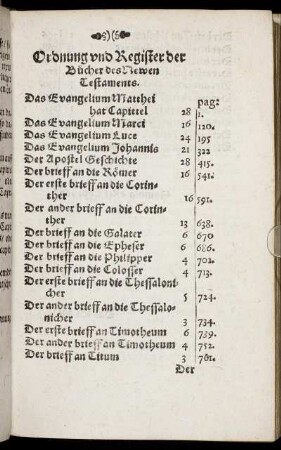 Ordnung vnd Register der
Bücher des Newen
Testaments.
pag:
Das Evangelium Matthei
hat Capittel 28 1.
Das Evangelium Marci 16 120.
Das Evangelium Luce 24 195
Das Evangelium Johannis 21 322
Der Apostel Geschichte 28 415.
Der brieff an die Römer 16 541.
Der erste brieff an die Corin⸗
ther 16 591.
Der ander brieff an die Corin⸗
ther 13 638.
Der brieff an die Galater 6 670
Der brieff an die Epheser 6 686.
Der brieff an die Philipper 4 702.
Der brieff an die Colosser 4 713.
Der erste brieff an die Thessaloni⸗
cher 5 724.
Der ander brieff an die Thessalo⸗
nicher 3 734.
Der erste brieff an Timotheum 6 739.
Der ander brieff an Timotheum 4 752.
Der brieff an Titum 3 761.
Der